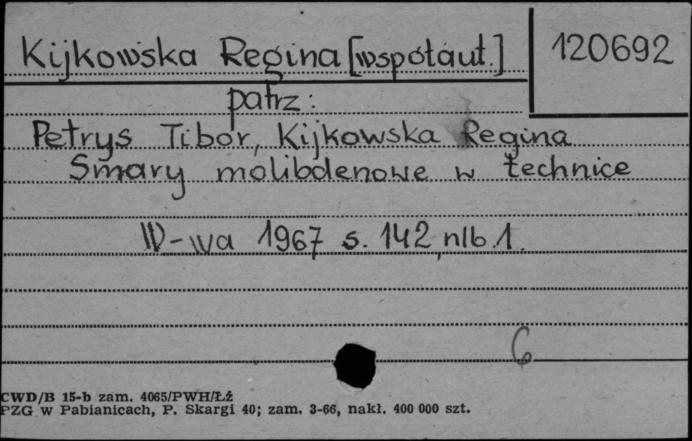 Kijkowska Regina [współaut.]
120692
patrz:
Petrys Tibor, Kijkowska Regina
Smary molibdenowe w technice
W-wa 1967 s. 142, nlb. 1.
6
CWD/B 15-b zam. 4065/PWH/Łź
PZG w Pabianicach, P. Skargi 40; zam. 3-66, nakł. 400 000 szt.